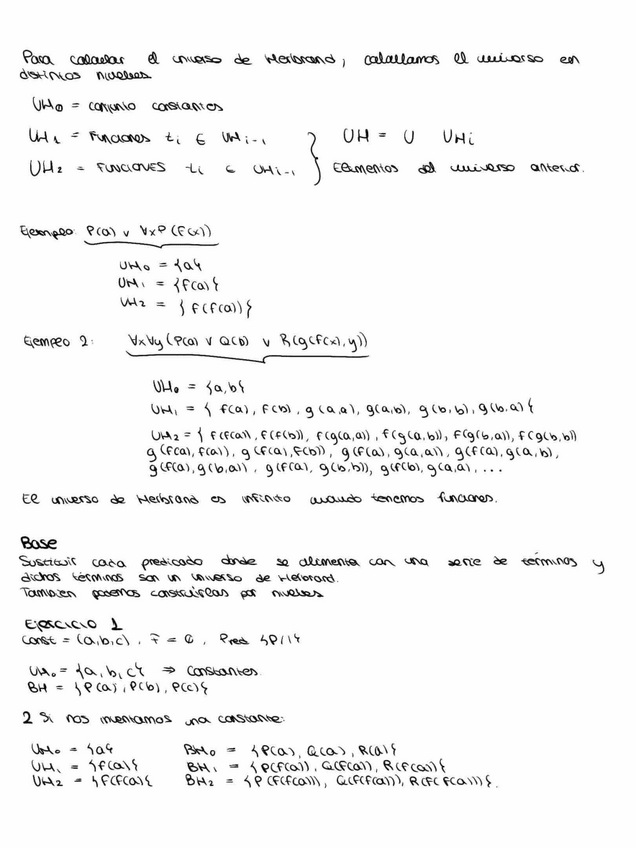 Para calcular el universo de Herbrand, calculamos el universo en
distintos niveles.
UH₀ = conjunto constantes
UH₁ = Funciones tᵢ ∈ UHᵢ₋₁ } UH = U UHᵢ
UH₂ = FUNCIONES tᵢ ∈ UHᵢ₋₁ } Elementos del universo anterior.
Ejemplo: P(a) ∨ ∀xP(F(x))
UH₀ = {a}
UH₁ = {F(a)}
UH₂ = {F(F(a))}
Ejemplo 2: ∀x∀y(P(a) ∨ Q(b) ∨ R(g(F(x),y))
UH₀ = {a,b}
UH₁ = { f(a), F(b), g(a,a), g(a,b), g(b,b), g(b,a)}
UH₂ = { F(F(a)), F(F(b)), F(g(a,a)), F(g(a,b)), F(g(b,a)), F(g(b,b))
g(F(a), F(a)), g(F(a),F(b)), g(F(a), g(a,a)), g(F(a), g(a,b),
g(F(a),g(b,a)), g(F(a), g(b,b)), g(F(b), g(a,a), ...
El universo de Herbrand es infinito cuando tenemos funciones.
Base
Sustituir cada predicado donde se alimenta con una serie de términos y
dichos términos son un universo de Herbrand.
También podemos construirlas por niveles
Ejercicio 1
Const = (a,b,c), F = ∅, Pred {P/1}
UH₀ = {a,b,c} ⇒ Constantes.
BH = {P(a), P(b), P(c)}
2 Si nos inventamos una constante:
UH₀ = {a} BH₀ = {P(a), Q(a), R(a)}
UH₁ = {F(a)} BH₁ = {P(F(a)), Q(F(a)), R(F(a))}
UH₂ = {F(F(a)} BH₂ = {P(F(F(a))), Q(F(F(a))), R(F(F(a)))}.